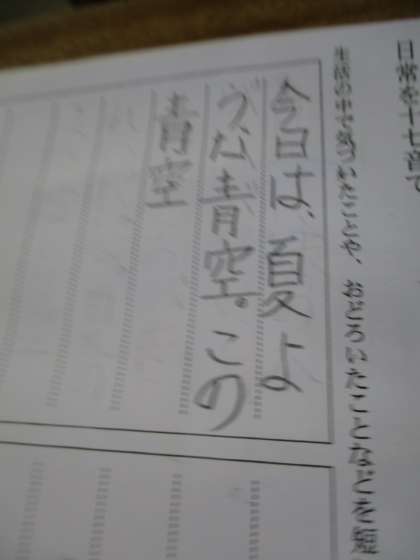 日常を十七音で
生活の中で気づいたことや、おどろいたことなどを題
今日は、夏よ
うな青空。この
青空